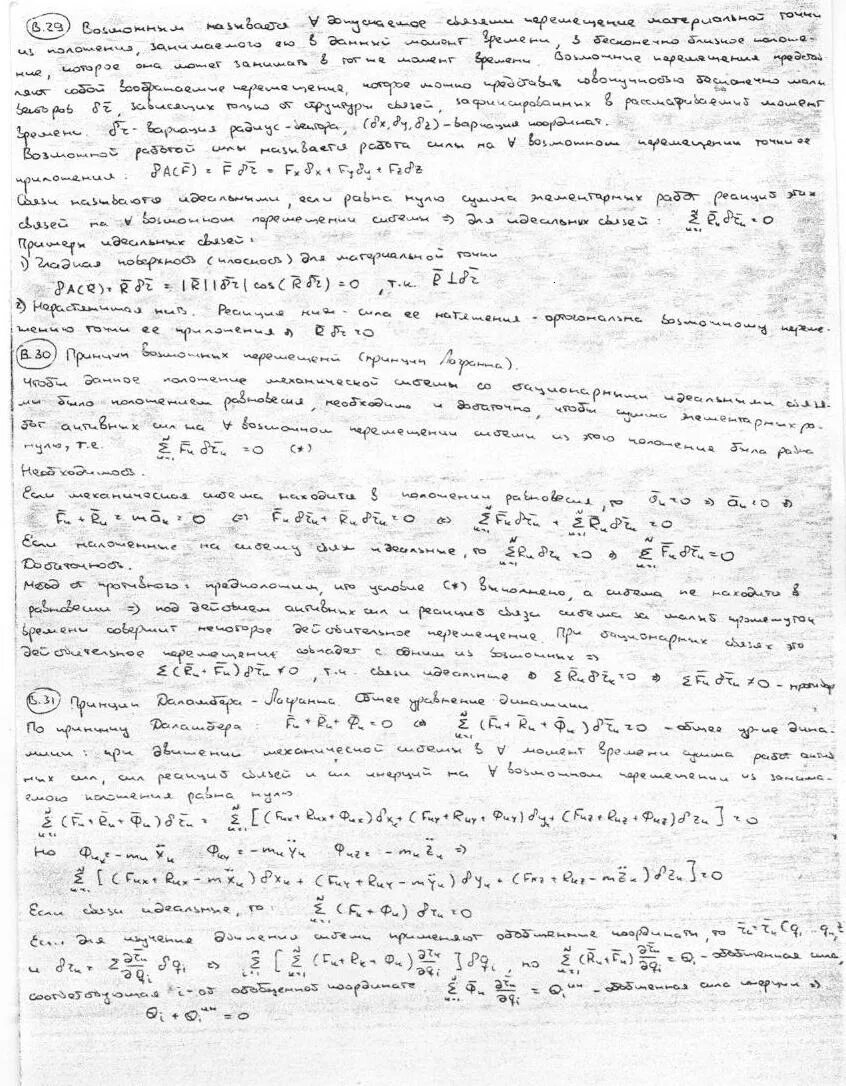 В.29 Возможным называется ∀ допускаемое связями перемещение материальной точки
из положения, занимаемого ею в данный момент времени, в бесконечно близкое положе-
ние, которое она может занимать в тот же момент времени. Возможные перемещения представ-
ляют собой воображаемые перемещения, которое можно представив совокупностью бесконечно малых
векторов δr̄, зависящих только от структуры связей, зафиксированных в рассматриваемый момент
времени. δr̄ - вариация радиус-вектора, (δx, δy, δz) - вариация координат.
Возможной работой силы называется работа силы на ∀ возможном перемещении точки ее
приложения: δA(F̄) = F̄ δr̄ = Fxδx + Fyδy + Fzδz
Связи называются идеальными, если равна нулю сумма элементарных работ реакций этих
связей на ∀ возможном перемещении системы => для идеальных связей: Σ R̄к δr̄к = 0
Примеры идеальных связей:
1) Гладкая поверхность (плоскость) для материальной точки
δA(R̄) = R̄ δr̄ = |R̄||δr̄| cos(R̄ δr̄) = 0, т.к. R̄ ⊥ δr̄
2) Нерастяжимая нить. Реакция нити - сила ее натяжения - ортогональна возможному переме-
щению точки ее приложения => R̄ δr̄ = 0
В.30 Принцип возможных перемещений (принцип Лагранжа).
Чтобы данное положение механической системы со стационарными идеальными связя-
ми было положением равновесия, необходимо и достаточно, чтобы сумма элементарных ра-
бот активных сил на ∀ возможном перемещении системы из этого положения была равна
нулю, т.е. Σ F̄к δr̄к = 0 (*)
Необходимость.
Если механическая система находится в положении равновесия, то v̄к = 0 => āк = 0 =>
F̄к + R̄к = māк = 0 <=> F̄к δr̄к + R̄к δr̄к = 0 <=> Σ F̄к δr̄к + Σ R̄к δr̄к = 0
Если наложенные на систему связи идеальные, то Σ R̄к δr̄к = 0 => Σ F̄к δr̄к = 0
Достаточность.
Метод от противного: предположим, что условие (*) выполнено, а система не находится в
равновесии => под действием активных сил и реакций связи система за малый промежуток
времени совершит некоторое действительное перемещение. При стационарных связях это
действительное перемещение совпадет с одним из возможных =>
Σ (R̄к + F̄к) δr̄к ≠ 0, т.к. связи идеальные => Σ R̄к δr̄к = 0 => Σ F̄к δr̄к ≠ 0 - противор
В.31 Принцип Даламбера - Лагранжа. Общее уравнение динамики
По принципу Даламбера: F̄к + R̄к + Φ̄к = 0 <=> Σ (F̄к + R̄к + Φ̄к) δr̄к = 0 - общее ур-ие дина-
мики: при движении механической системы в ∀ момент времени сумма работ актив-
ных сил, сил реакций связей и сил инерций на ∀ возможном перемещении из занима-
емого положения равна нулю.
Σ (F̄к + R̄к + Φ̄к) δr̄к = Σ [(Fкx + Rкx + Φкx) δxк + (Fкy + Rкy + Φкy) δyк + (Fкz + Rкz + Φкz) δzк] = 0
но Φкx = -mк ẍк Φкy = -mк ÿк Φкz = -mк z̈к =>
Σ [(Fкx + Rкx - mẍк) δxк + (Fкy + Rкy - mÿк) δyк + (Fкz + Rкz - mz̈к) δzк] = 0
Если связи идеальные, то: Σ (Fк + Φк) δrк = 0
Если для изучения движения системы применяют обобщенные координаты, то r̄к = r̄к (q₁ ... qₙ, t)
и δrк = Σ ∂r̄к/∂qᵢ δqᵢ => Σ [Σ (Fк + Rк + Φк) ∂r̄к/∂qᵢ] δqᵢ но Σ (R̄к + F̄к) ∂r̄к/∂qᵢ = Qᵢ - обобщенная сила,
соответствующая i-ой обобщенной координате Σ Φ̄к ∂r̄к/∂qᵢ = Qᵢ ин - обобщенная сила инерции =>
Qᵢ + Qᵢ ин = 0